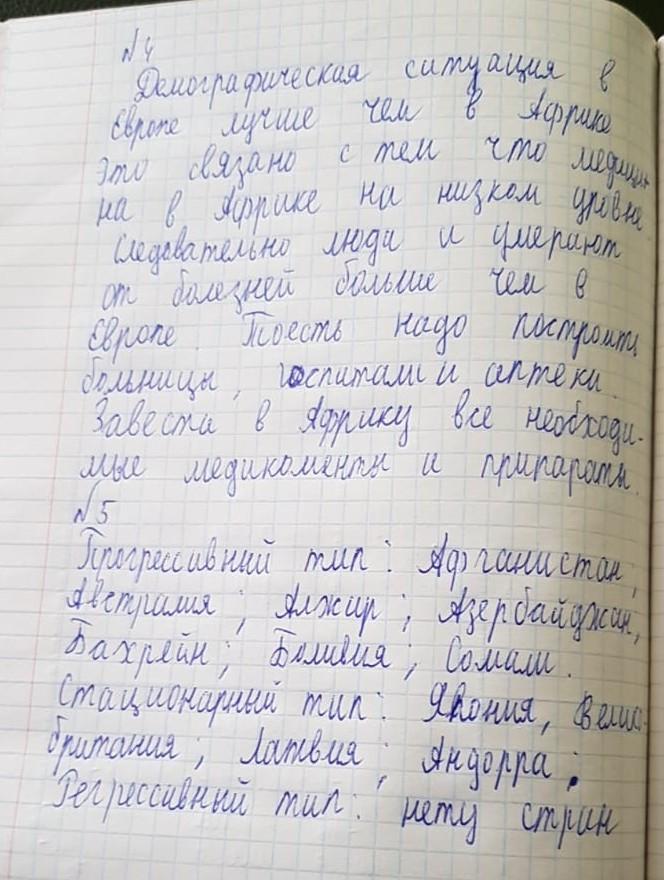 №4
Демографическая ситуация в
Европе лучше чем в Африке
это связано с тем что медици-
на в Африке на низком уровне
Следовательно люди и умерают
от болезней больше чем в
Европе. Тоесть надо построить
больницы, госпитали и аптеки.
Завести в Африку все необходи-
мые медикоменты и припараты.
№5
Прогрессивный тип: Афганистан,
Австралия; Алжир; Азербайджан,
Бахрейн; Боливия; Сомали.
Стационарный тип: Япония, Велико-
британия; Латвия; Андорра;
Регрессивный тип: нету стран